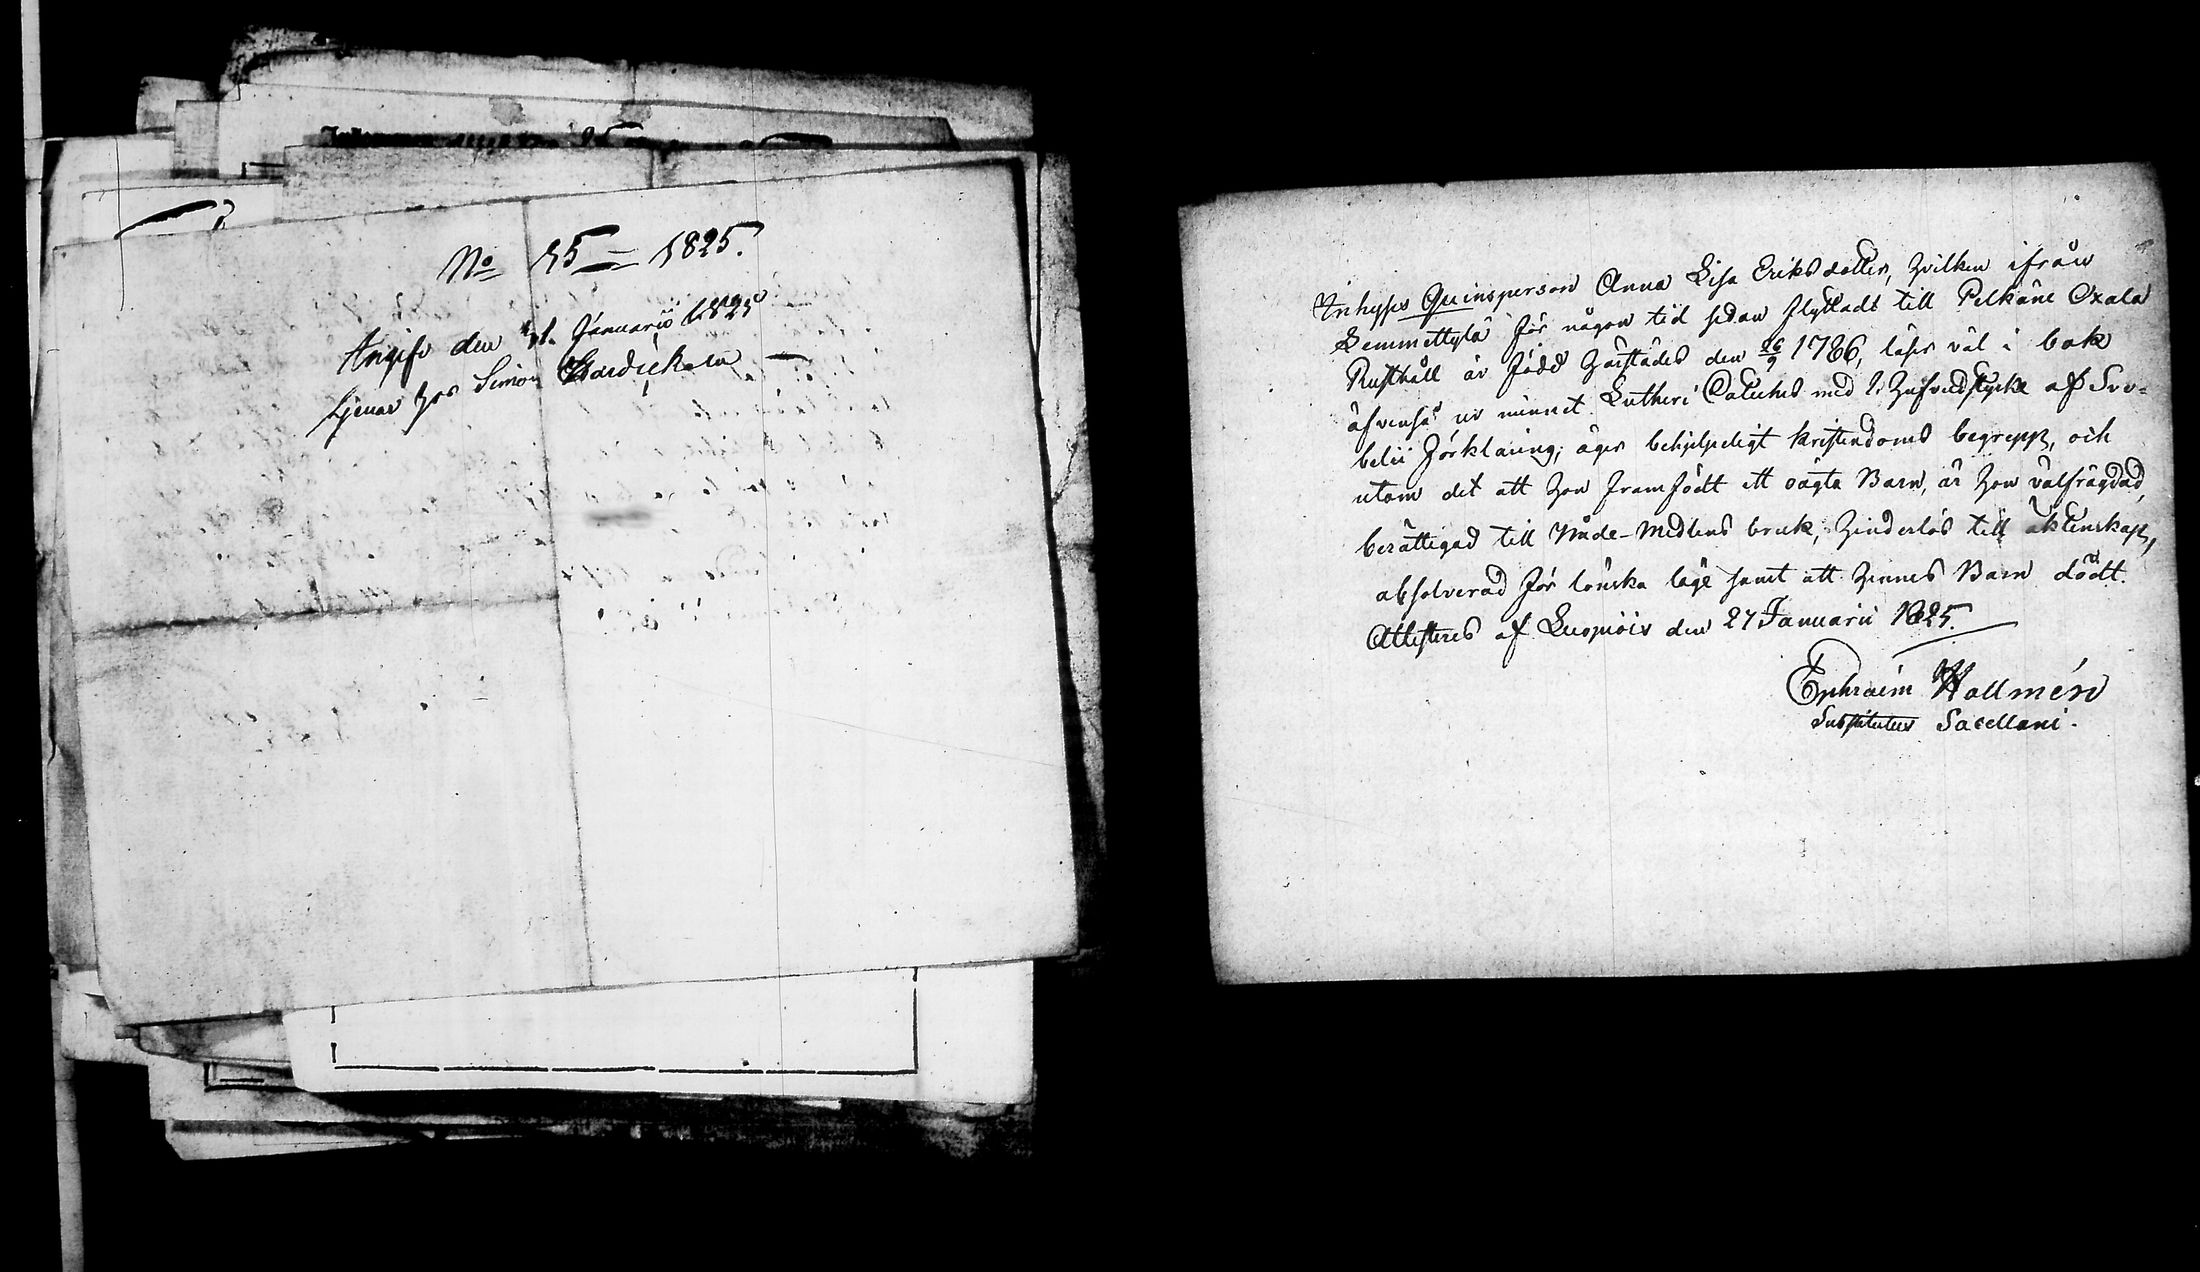 No 15 = 1825.
Angifv den 31. Januarii 1825
tjenar hos Simon
Inhyses Qvinsperson Anna Lisa Eriksdotter, hvilken ifrån
Lemmettylä för någon tid sedan flyttadt till Pelkäne Oxala
Rusthåll är född härstädes den 26/9 1786, läser väl i bok
äfvenså ur minnet Lutheri Cateches med 2 hufvudstycke af Sve-
belii förklaring; äger behjelpeligt kristendoms begrepp, och
utom det att hon framfödt ett oägta Barn, är hon välfrägdad,
berättigad till Nåde-Medlens bruk, hinderlös till äktenskap,
absolverad för lönska läge samt att hennes Barn dödt.
Attesteres af Luopiois den 27 Januarii 1825.
Ephraim Hallmén
Substitutus Sacellani.